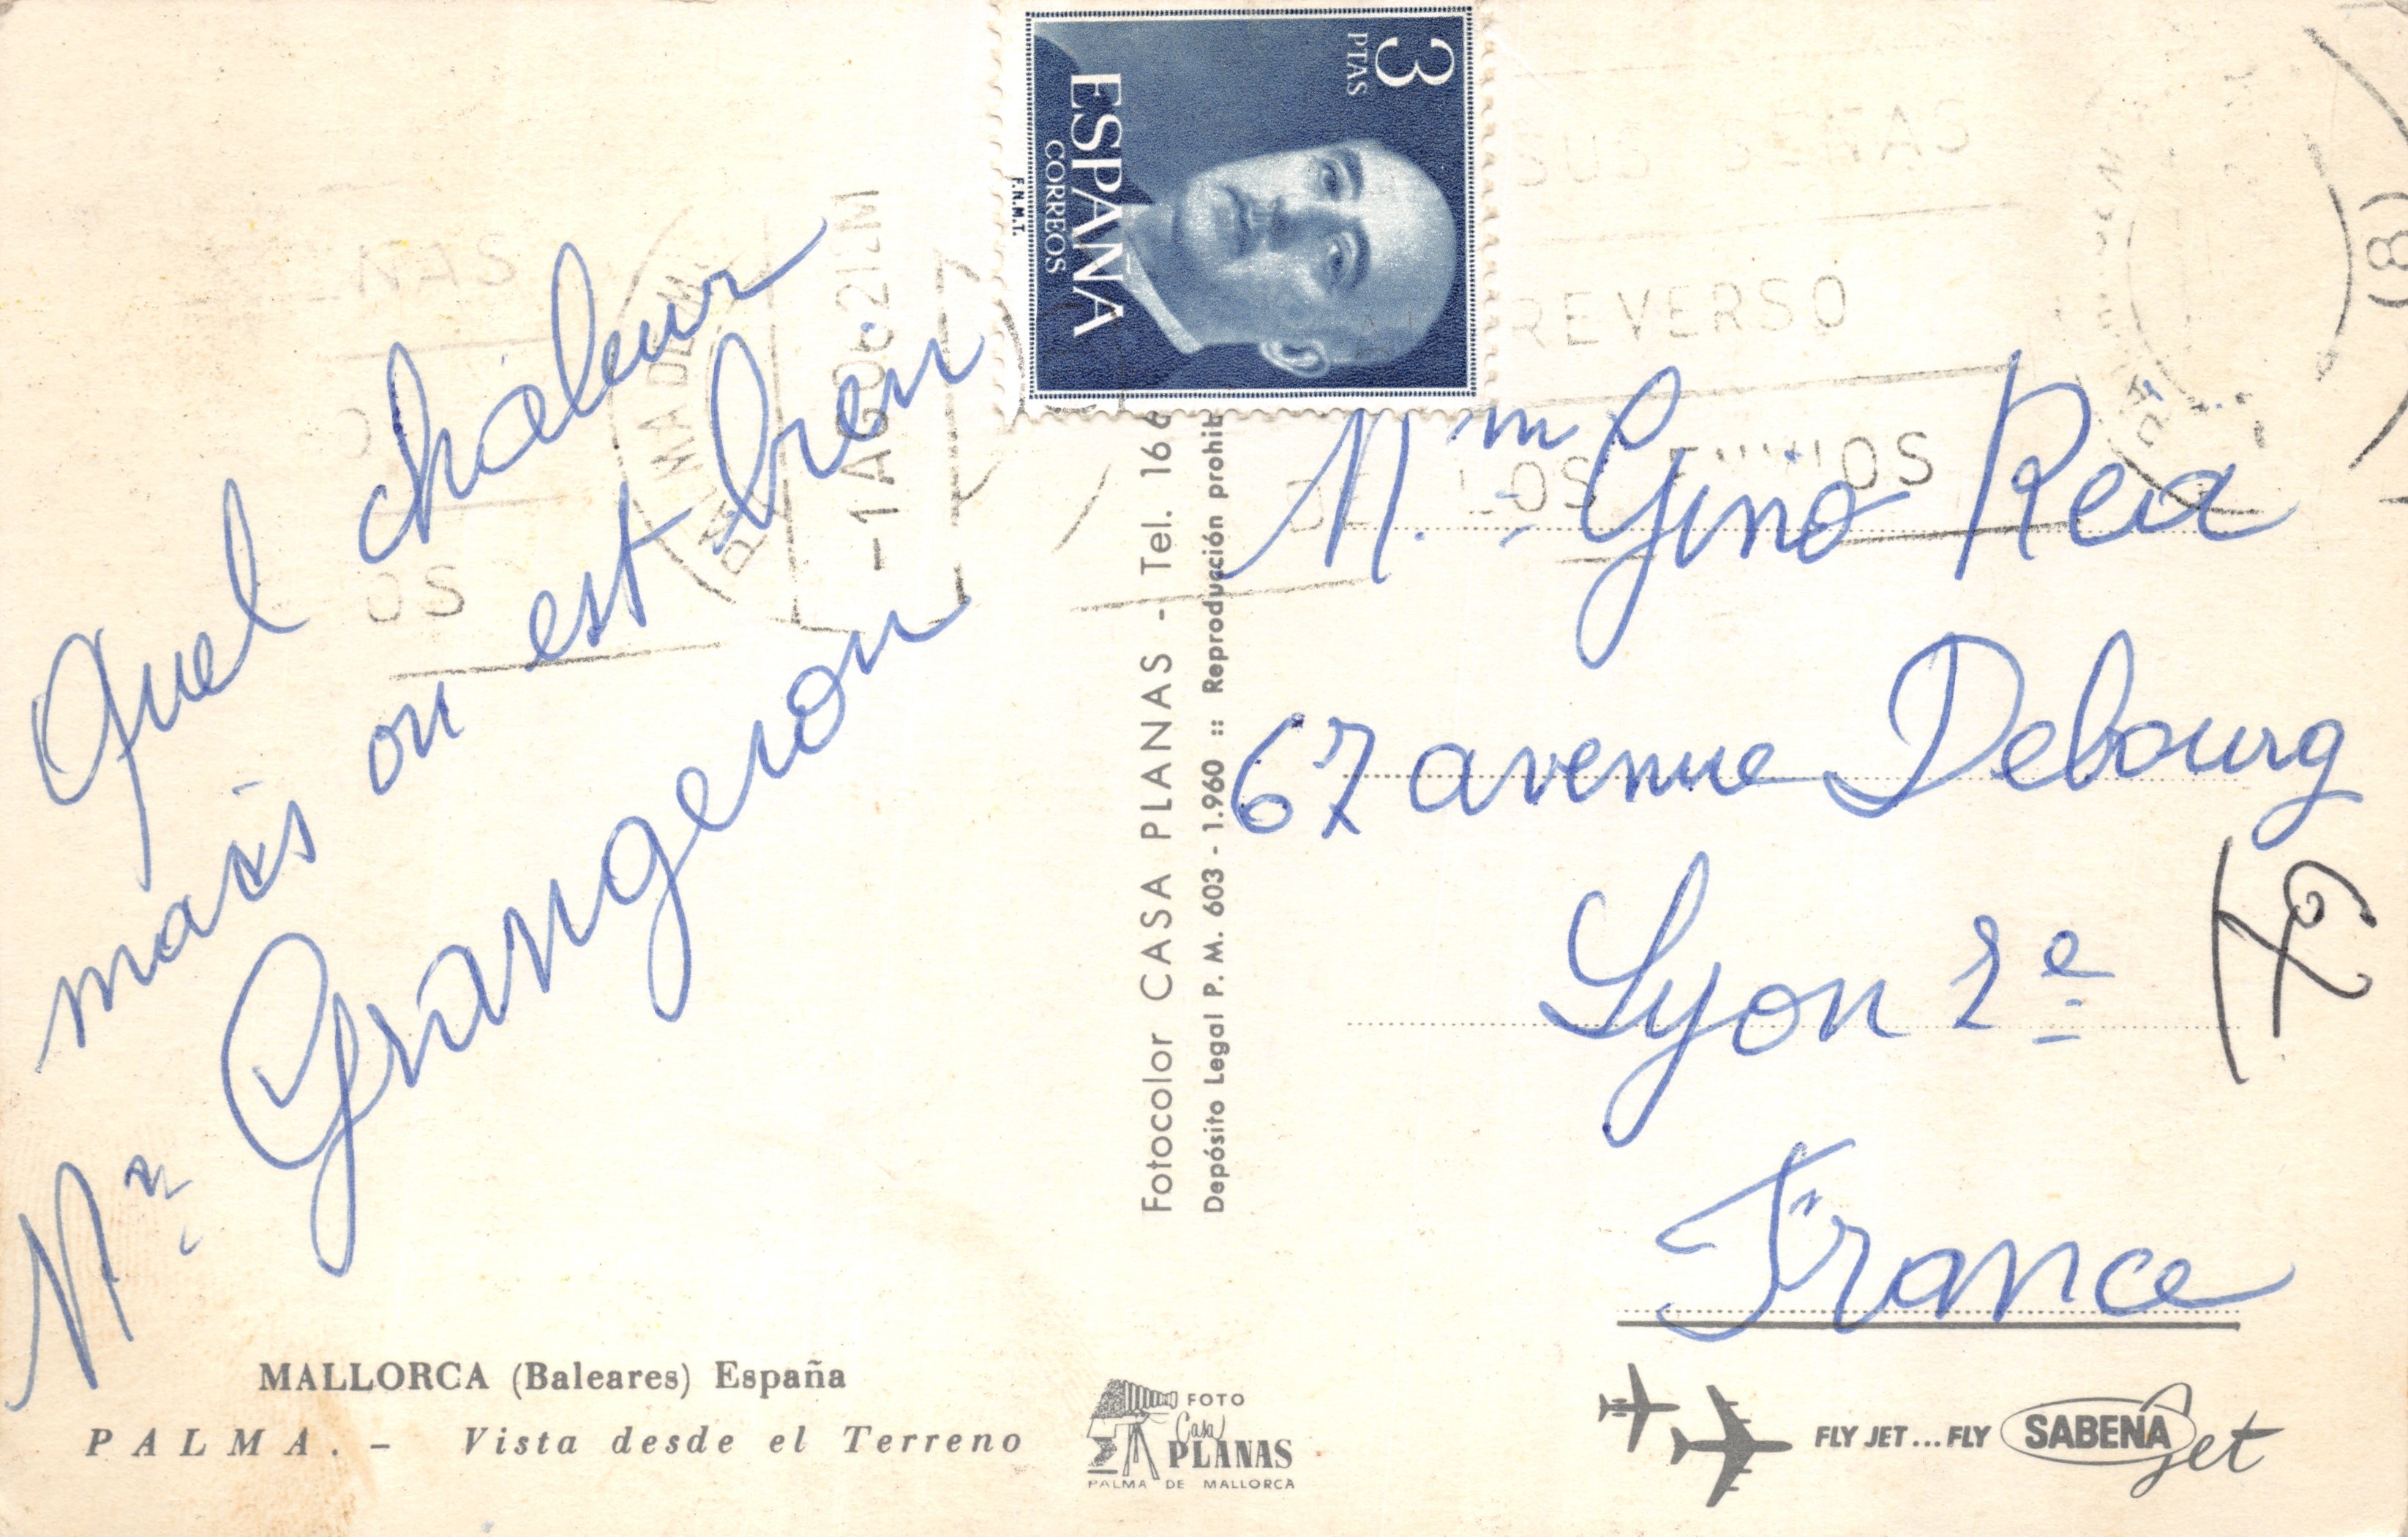 Quel chaleur
mais on est bien
Grangeron
MALLORCA (Baleares) España
PALMA. - Vista desde el Terreno
Fotocolor CASA PLANAS - Tel. 166
Depósito Legal P. M. 603 - 1.960 :: Reproducción prohib
FOTO
Casa
PLANAS
PALMA DE MALLORCA
3
PTAS
ESPAÑA
CORREOS
F.N.M.T.
SUS SEÑAS
REVERSO
DE LOS
ENAS
OS
PALMA DE MA
-1 AGO 62 12M
(8)
Mme Gino Rea
67 avenue Debourg
Lyon 2e
France
FLY JET...FLY SABENA jet